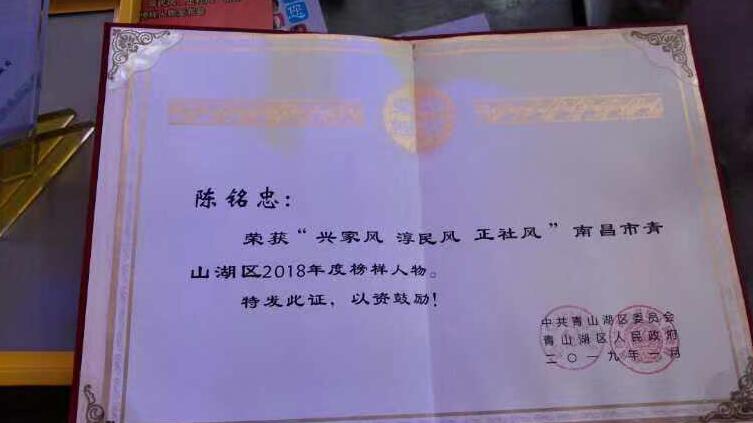 您
陈铭忠：
荣获“兴家风 淳民风 正社风”南昌市青
山湖区2018年度榜样人物。
特发此证，以资鼓励！
中共青山湖区委员会
青山湖区人民政府
二〇一九年一月